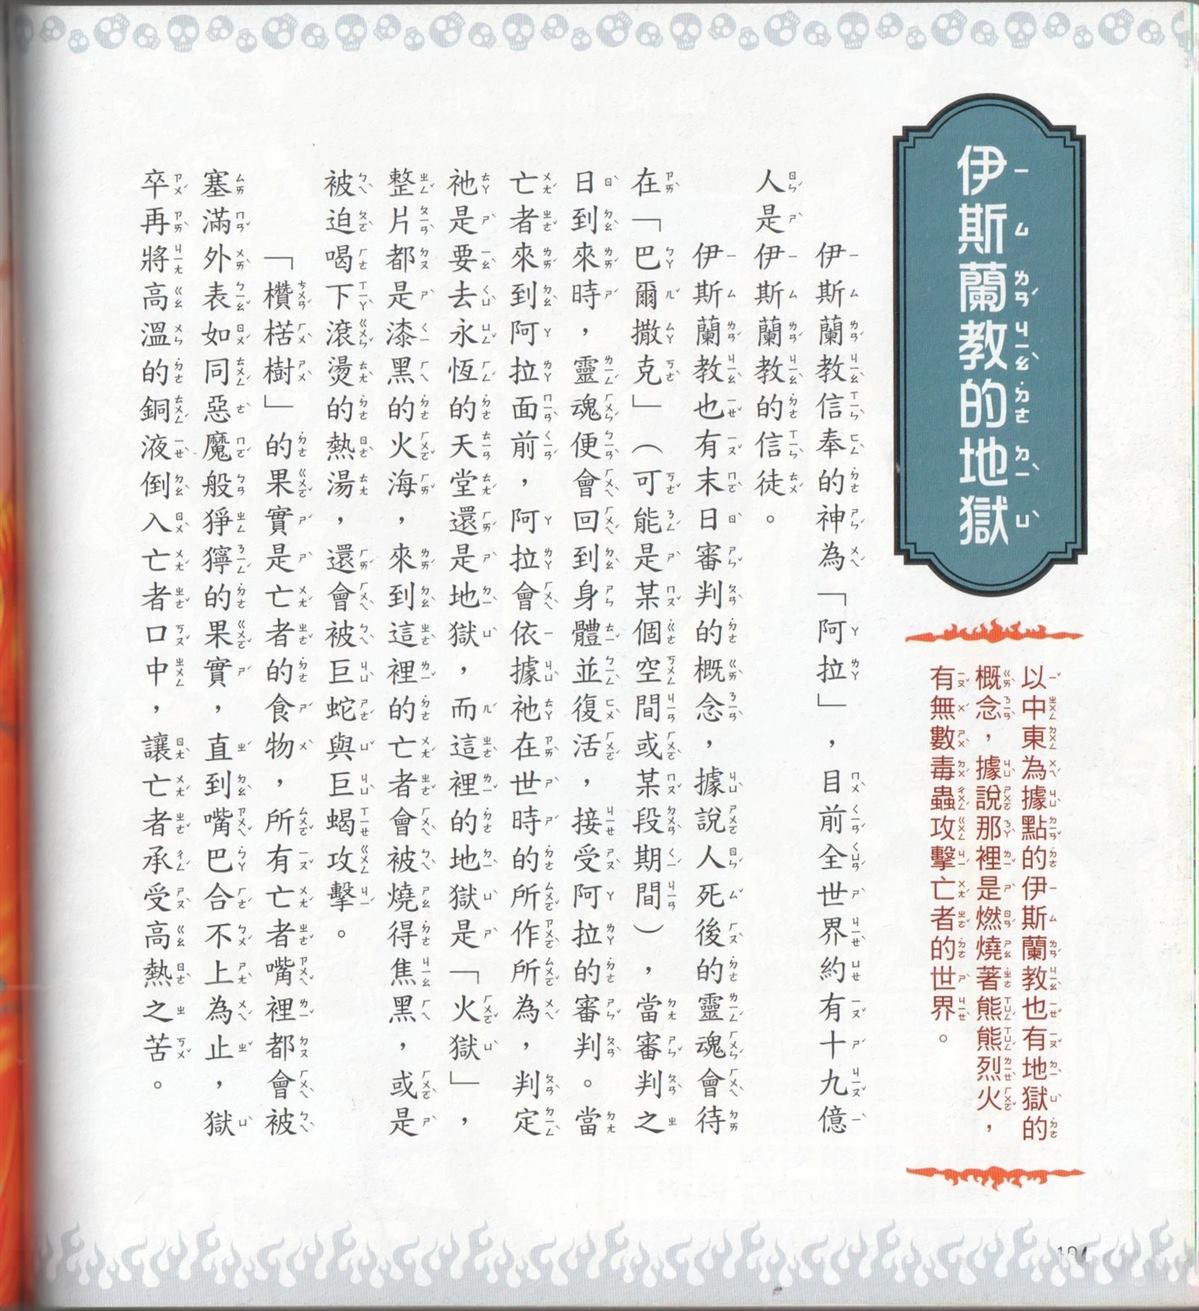 伊斯蘭教的地獄
以中東為據點的伊斯蘭教也有地獄的
概念，據說那裡是燃燒著熊熊烈火，
有無數毒蟲攻擊亡者的世界。
伊斯蘭教信奉的神為「阿拉」，目前全世界約有十九億
人是伊斯蘭教的信徒。
伊斯蘭教也有末日審判的概念，據說人死後的靈魂會待
在「巴爾撒克」（可能是某個空間或某段期間），當審判之
日到來時，靈魂便會回到身體並復活，接受阿拉的審判。當
亡者來到阿拉面前，阿拉會依據祂在世時的所作所為，判定
祂是要去永恆的天堂還是地獄，而這裡的地獄是「火獄」，
整片都是漆黑的火海，來到這裡的亡者會被燒得焦黑，或是
被迫喝下滾燙的熱湯，還會被巨蛇與巨蠍攻擊。
「欑楛樹」的果實是亡者的食物，所有亡者嘴裡都會被
塞滿外表如同惡魔般猙獰的果實，直到嘴巴合不上為止，獄
卒再將高溫的銅液倒入亡者口中，讓亡者承受高熱之苦。
104